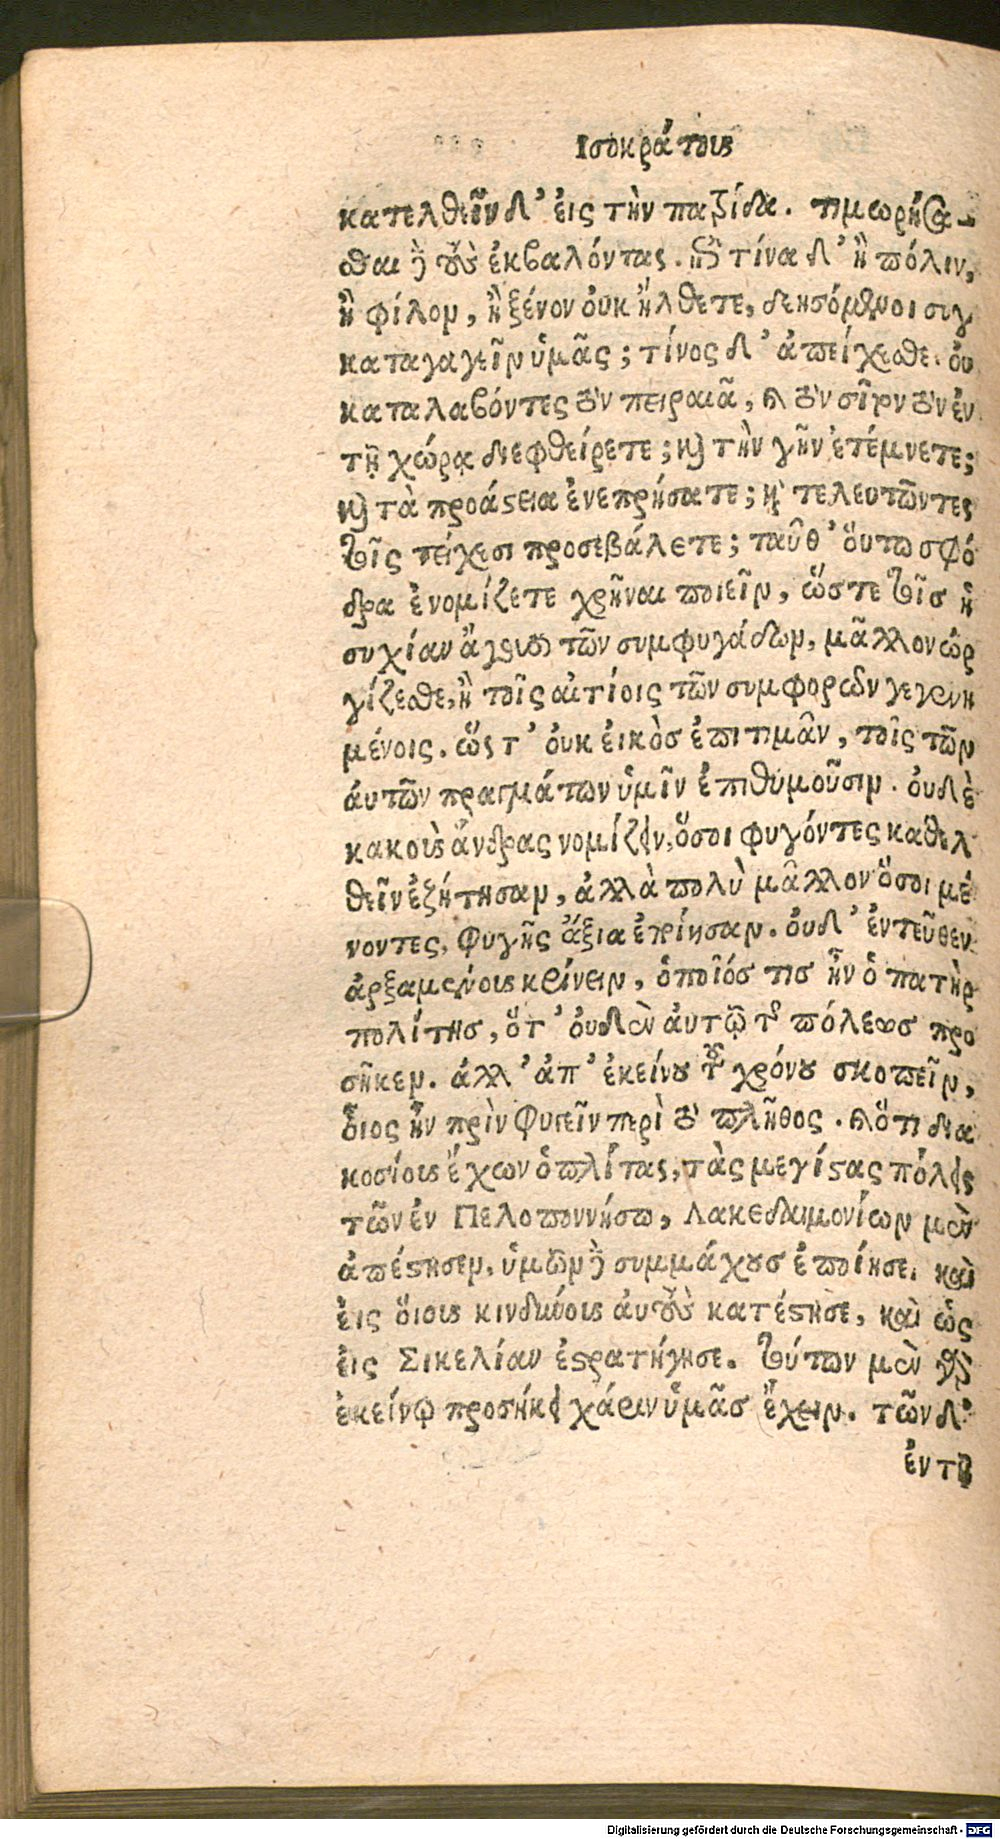 Ισοκράτους
κατελθεῖν δ' ἐις τὴν πατρίδα. τιμωρήσα-
σθαι δὲ τοὺς ἐκβαλόντας. ἐπὶ τίνα δ' ἢ πόλιν,
ἢ φίλον, ἢ ξένον ὀυκ ἤλθετε, δεησόμενοι συγ
καταγαγεῖν ὑμᾶς; τίνος δ' ἀπείχεσθε. ὀυ
καταλαβόντες τὸν πειραιᾶ, καὶ τὸν σῖτον τὸν ἐν
τῇ χώρᾳ διεφθείρετε; καὶ τὴν γῆν ἐτέμνετε;
καὶ τὰ προάστεια ἐνεπρήσατε; καὶ τελευτῶντες
τοῖς τείχεσι προσεβάλετε; ταῦθ' ὅυτω σφό
δρα ἐνομίζετε χρῆναι ποιεῖν, ὥστε τοῖσ ἡ
συχίαν ἄγουσι τῶν συμφυγάδων, μᾶλλον ὠρ
γίζεσθε, ἢ τοῖς αἰτίοις τῶν συμφορῶν γεγενη
μένοις. ὥστ' ὀυκ ἐικὸσ ἐπιτιμᾶν, τοῖς τῶν
ἀυτῶν πραγμάτων ὑμῖν ἐπιθυμοῦσιν. ὀυδὲ
κακοὺς ἄνδρας νομίζειν, ὅσοι φυγόντες κατελ
θεῖν ἐζήτησαν, ἀλλὰ πολὺ μᾶλλον ὅσοι μέ
νοντες, φυγῆς ἄξια ἐποίησαν. ὀυδ' ἐντεῦθεν
ἀρξαμένους κρίνειν, ὁποῖός τισ ἦν ὁ πατὴρ
πολίτησ, ὅτ' ὀυδὲν ἀυτῷ τῆς πόλεωσ προ
σῆκεν. ἀλλ' ἀπ' ἐκείνου τοῦ χρόνου σκοπεῖν,
ὅιος ἦν πρὶν φυγεῖν περὶ τὸ πλῆθος. καὶ ὅτι δια
κοσίους ἔχων ὁπλίτας, τὰς μεγίστας πόλεις
τῶν ἐν Πελοποννήσῳ, Λακεδαιμονίων μὲν
ἀπέστησεν, ὑμῶν δὲ συμμάχουσ ἐποίησε. καὶ
ἐις ὅιους κινδύνους ἀυτοὺς κατέστησε, καὶ ὡς
ἐις Σικελίαν ἐστρατήγησε. τούτων μὲν γὰρ
ἐκείνῳ προσήκει χάριν ὑμᾶσ ἔχειν. τῶν δ'
ἐν τῇ
Digitalisierung gefördert durch die Deutsche Forschungsgemeinschaft - DFG